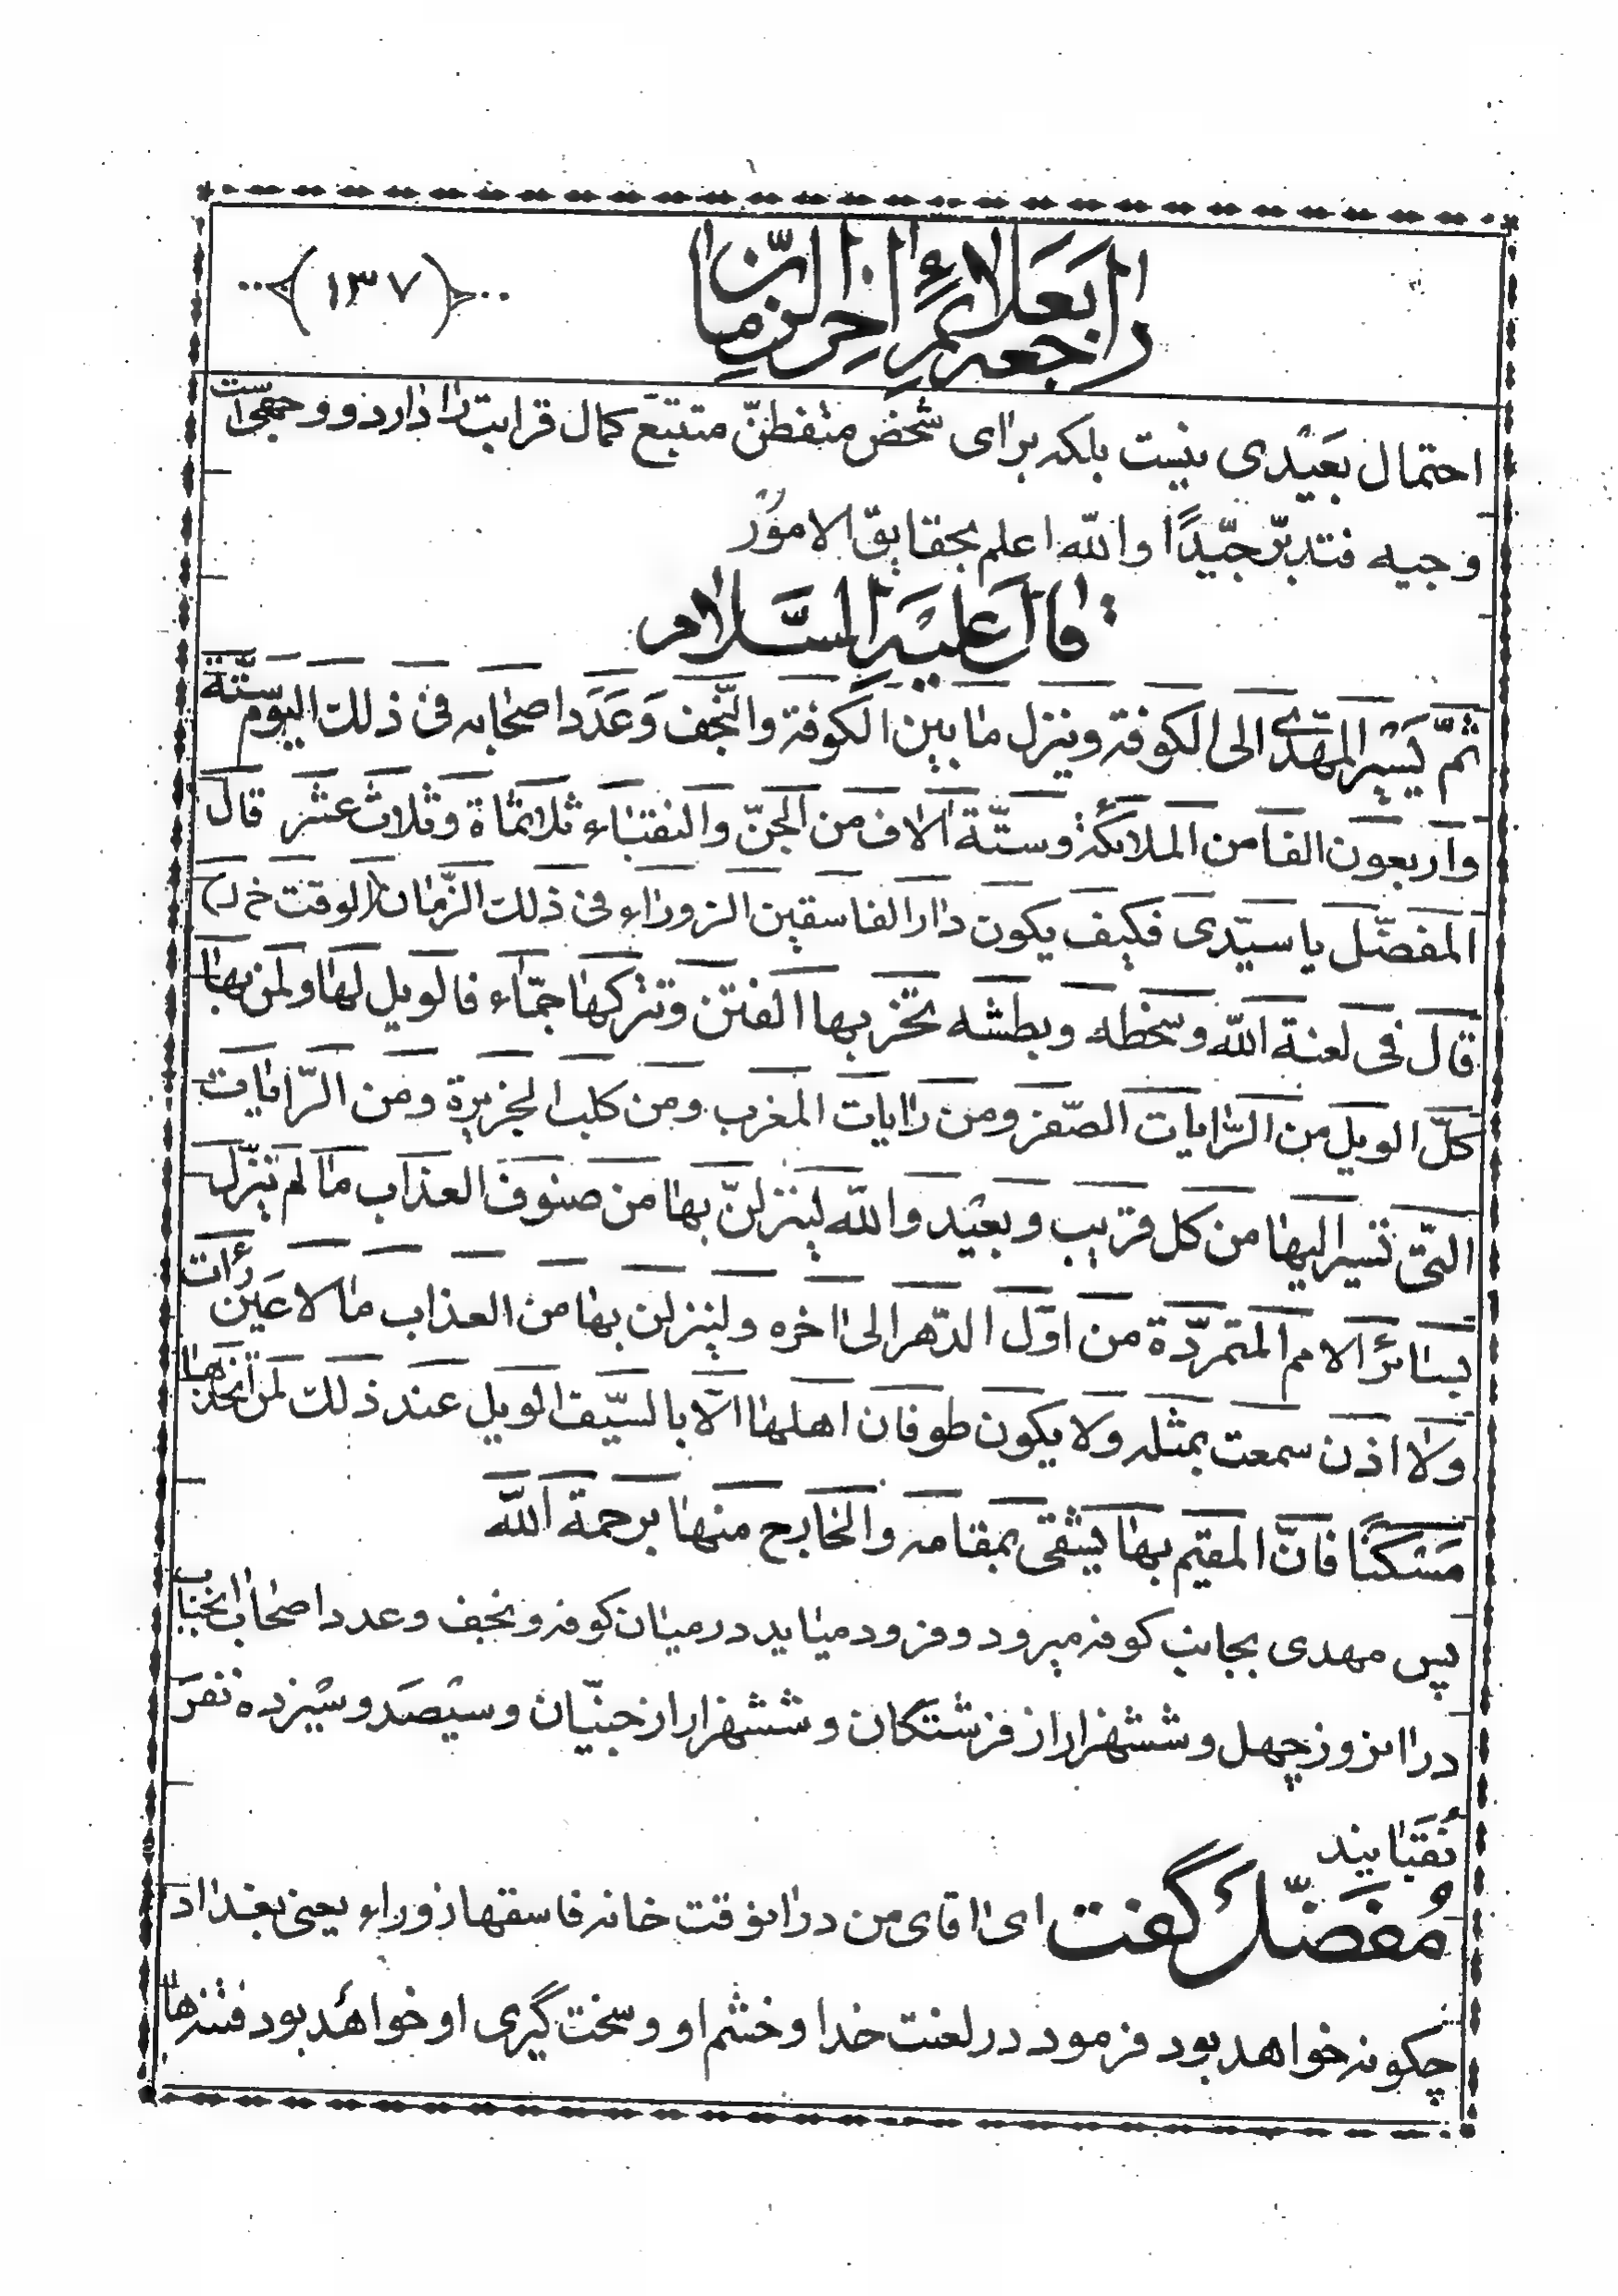 راجعه بعلائم اخر الزمان
(۱۳۷)
احتمال بعیدی نیست بلکه برای شخص متفطنّ متتبّع کمال قرابت را دارد و وجهی است
وجیه فتدبرّ جیّدًا والله اعلم بحقایق الامور
قال علیه السّلام
ثمّ یسیر المهدی الی الکوفة وینزل ما بین الکوفة والنّجف وَعَدَد اصحابه فی ذلک الیوم ستّة
واربعون الفا من الملائکة وستّة الاف من الجنّ والنقباء ثلاثمأة وثلاث عشر قال
المفضّل یا سیّدی فکیف یکون دار الفاسقین الزوراء فی ذلک الزّمان (الوقت خ ل)
قال فی لعنة الله وسخطه وبطشه تخربها الفتن وتترکها جمّاء فالویل لها ولمن بها
کلّ الویل من الرّایات الصّفر ومن رایات المغرب ومن کلب الجزیرة ومن الرّایات
التّی تسیر الیها من کل قریب وبعید والله لینزلنّ بها من صنوف العذاب ما لم ینزل
بسائر الامم المتمردّة من اوّل الدّهر الی اخره ولینزلن بها من العذاب ما لا عین رأت
ولا اذن سمعت بمثله ولا یکون طوفان اهلها الّا بالسیّف الویل عند ذلک لمن اتخذها
مَسکنًا فانّ المقیم بها یشقی بمقامه والخارج منها برحمة الله
پس مهدی بجانب کوفه میرود و فرود میاید در میان کوفه و نجف و عدد اصحاب انجناب
در انروز چهل و ششهزار از فرشتگان و ششهزار از جنیّان و سیصد و سیزده نفر
نُقَبایند
مُفَضّل گفت ای اقای من در انوقت خانه فاسقها زوراء یعنی بغداد
چگونه خواهد بود فرمود در لعنت خدا و خشم او و سخت گیری او خواهد بود فتنه ها